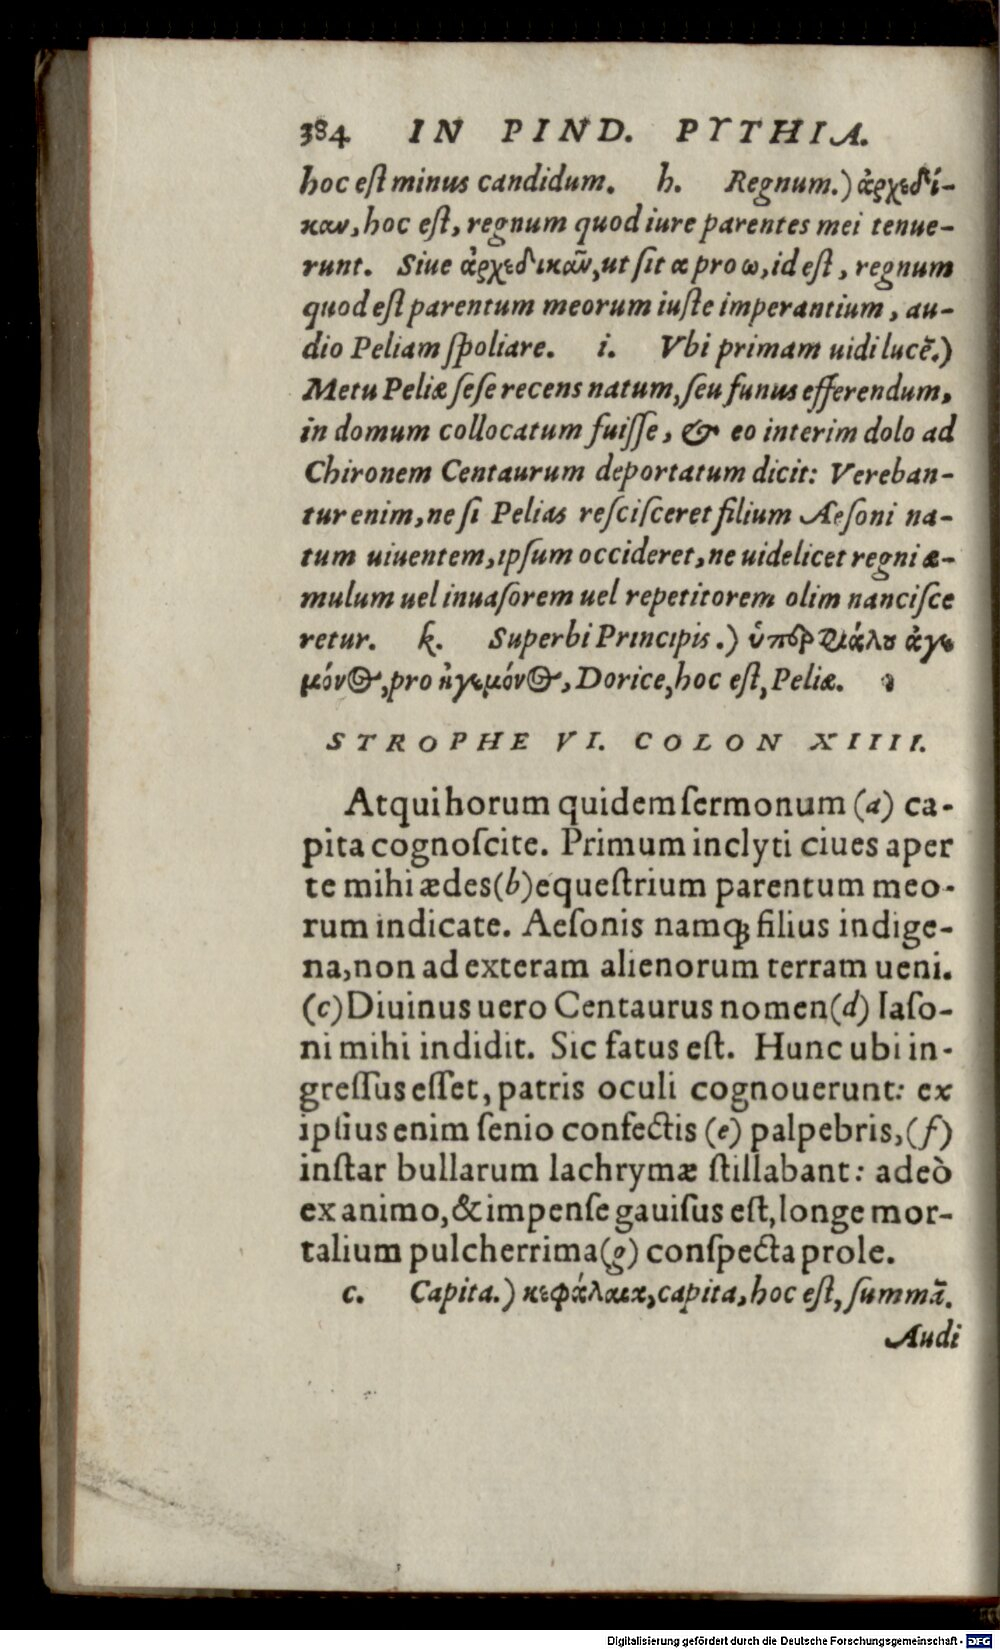 384 IN PIND. PYTHIA.
hoc eſt minus candidum. h. Regnum.) ἀρχεδί-
καν, hoc eſt, regnum quod iure parentes mei tenue-
runt. Siue ἀρχεδικᾶν, ut ſit α pro ω, id eſt, regnum
quod eſt parentum meorum iuſte imperantium, au-
dio Peliam ſpoliare. i. Vbi primam uidi lucē.)
Metu Peliæ ſeſe recens natum, ſeu funus efferendum,
in domum collocatum fuiſſe, & eo interim dolo ad
Chironem Centaurum deportatum dicit: Vereban-
tur enim, ne ſi Pelias reſciſceret filium Aeſoni na-
tum uiuentem, ipſum occideret, ne uidelicet regni æ-
mulum uel inuaſorem uel repetitorem olim nanciſce
retur. k. Superbi Principis.) ὑπερφιάλου ἁγε
μόνος, pro ἡγεμόνος, Dorice, hoc eſt, Peliæ.
STROPHE VI. COLON XIIII.
Atqui horum quidem ſermonum (a) ca-
pita cognoſcite. Primum inclyti ciues aper
te mihi ædes (b) equeſtrium parentum meo-
rum indicate. Aeſonis namqꝫ filius indige-
na, non ad exteram alienorum terram ueni.
(c) Diuinus uero Centaurus nomen (d) Iaſo-
ni mihi indidit. Sic fatus eſt. Hunc ubi in-
greſſus eſſet, patris oculi cognouerunt: ex
ipſius enim ſenio confectis (e) palpebris, (f)
inſtar bullarum lachrymæ ſtillabant: adeò
ex animo, & impenſe gauiſus eſt, longe mor-
talium pulcherrima (g) conſpecta prole.
c. Capita.) κεφάλαια, capita, hoc eſt, ſummā.
Audi
Digitalisierung gefördert durch die Deutsche Forschungsgemeinschaft - DFG